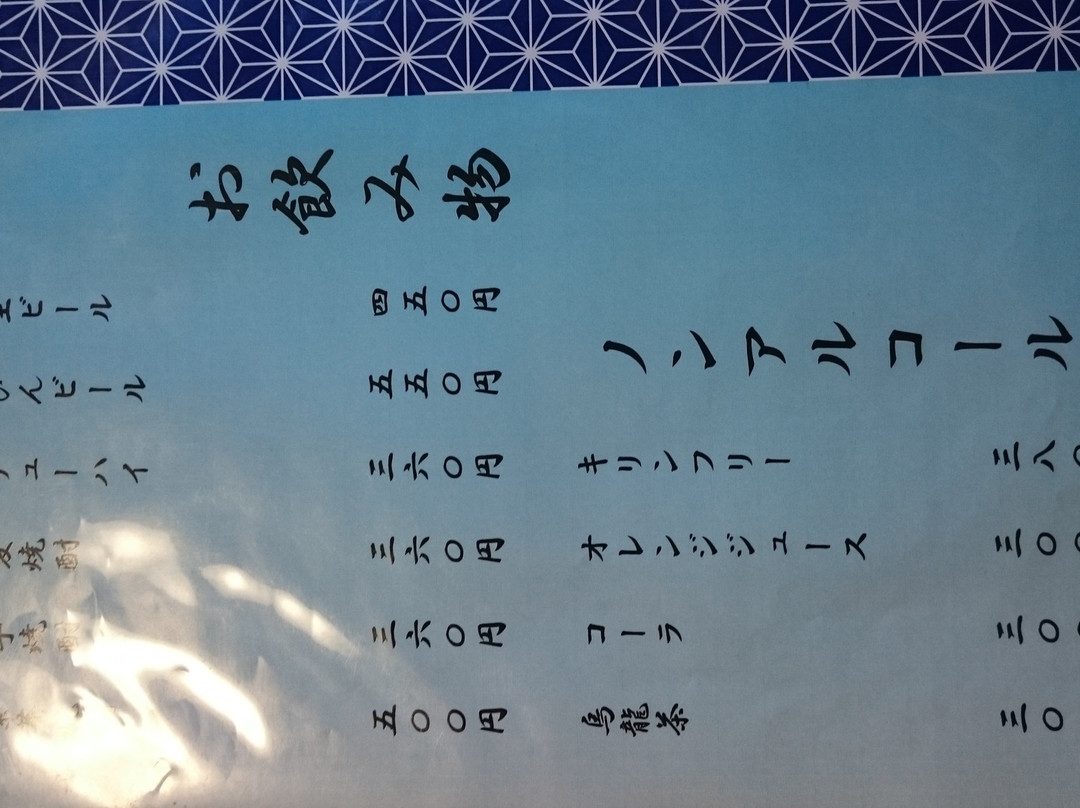 お飲み物
ビール 四五〇円
んビール 五五〇円
ューハイ 三六〇円
焼酎 三六〇円
焼酎 三六〇円
五〇〇円
ノンアルコール
キリンフリー 三八〇
オレンジジュース 三〇〇
コーラ 三〇〇
烏龍茶 三〇